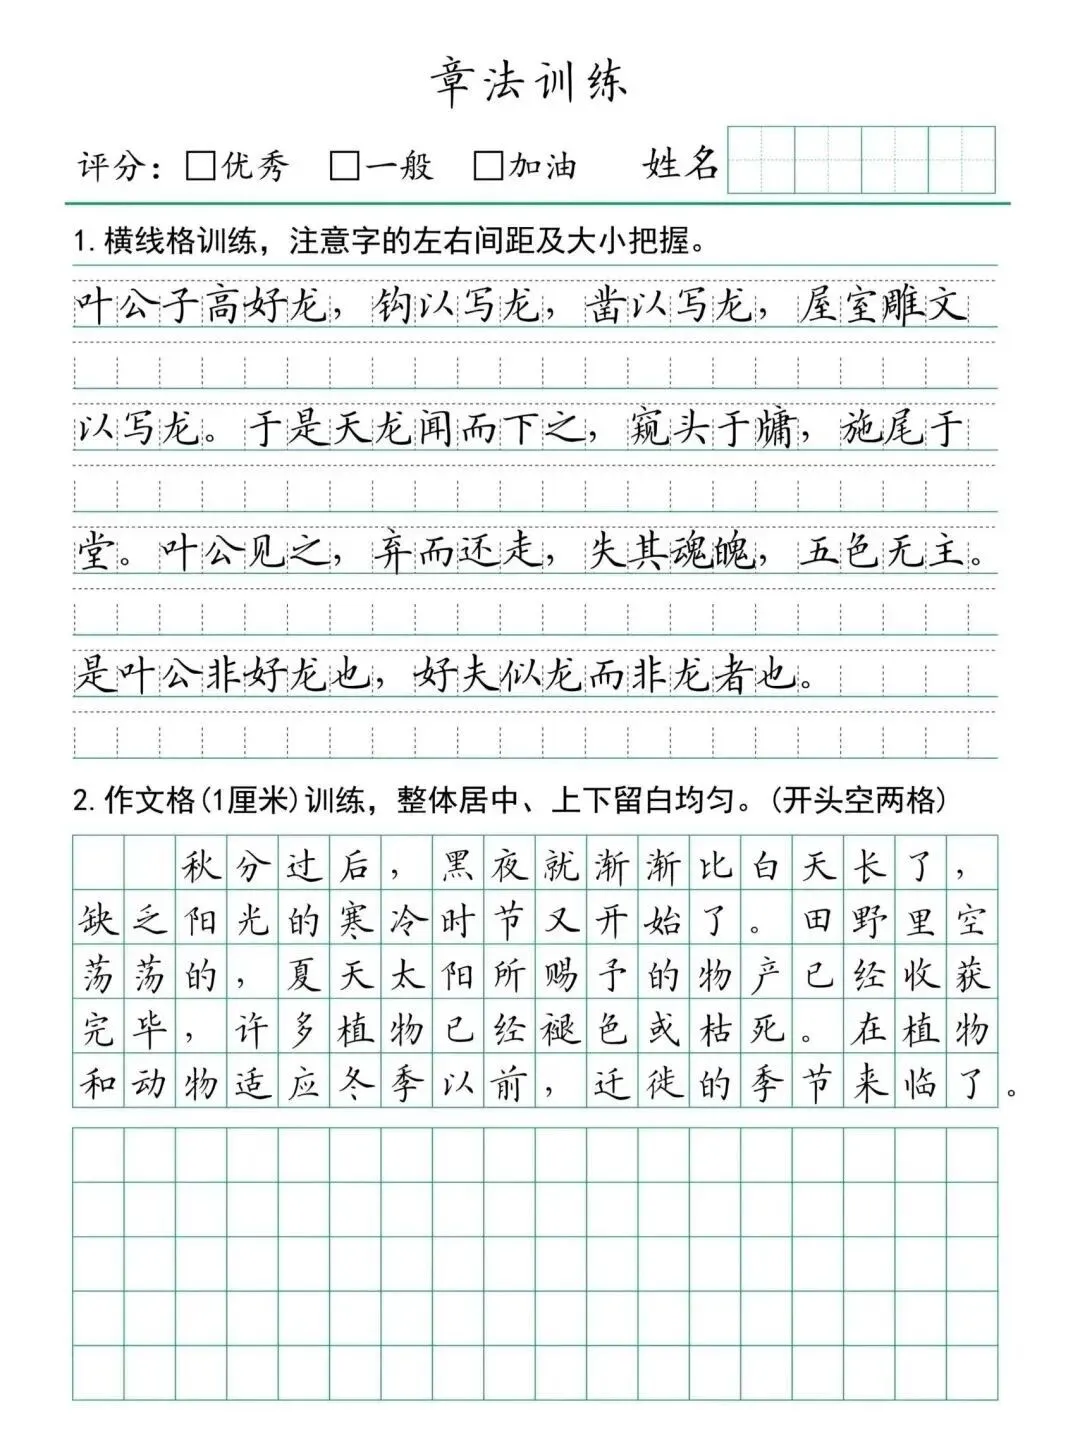 章法训练
评分：□优秀 □一般 □加油 姓名
1.横线格训练，注意字的左右间距及大小把握。
叶公子高好龙，钩以写龙，凿以写龙，屋室雕文
以写龙。于是天龙闻而下之，窥头于牖，施尾于
堂。叶公见之，弃而还走，失其魂魄，五色无主。
是叶公非好龙也，好夫似龙而非龙者也。
2.作文格(1厘米)训练，整体居中、上下留白均匀。(开头空两格)
秋分过后，黑夜就渐渐比白天长了，
缺乏阳光的寒冷时节又开始了。田野里空
荡荡的，夏天太阳所赐予的物产已经收获
完毕，许多植物已经褪色或枯死。在植物
和动物适应冬季以前，迁徙的季节来临了。